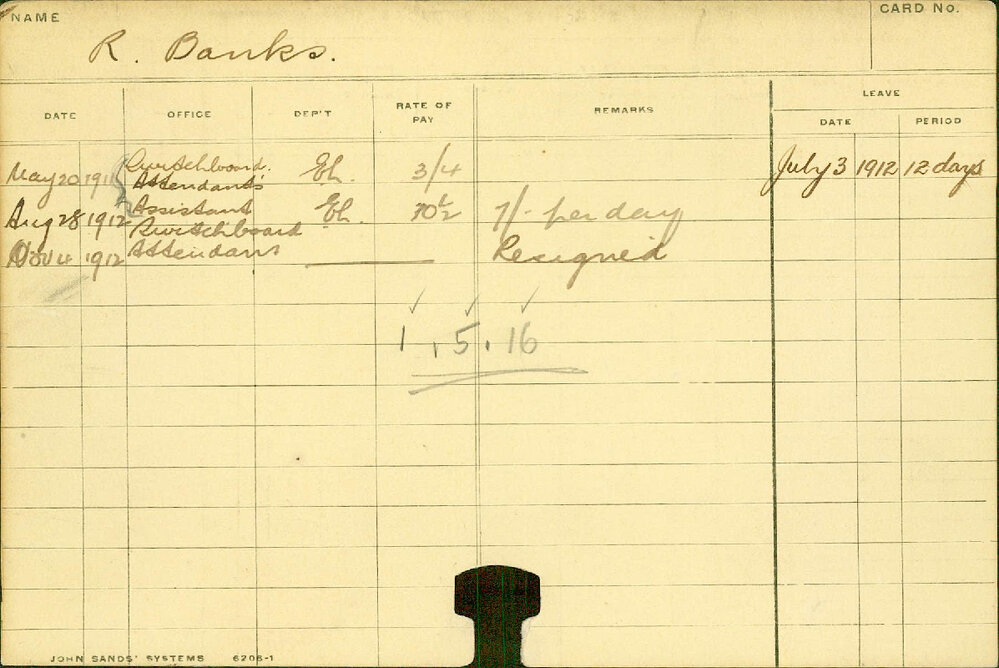 NAME
CARD NO.
R. Banks.
LEAVE
DATE OFFICE DEP'T RATE OF PAY REMARKS DATE PERIOD
Switchboard.
May 20 1911 Attendants' El. 3/4 July 3 1912 12 days
Assistant
Aug 28 1912 El. 10½ 7/- per day
Switchboard
Nov 4 1912 Attendant Resigned
1 . 5 . 16
JOHN SANDS' SYSTEMS 6206-1